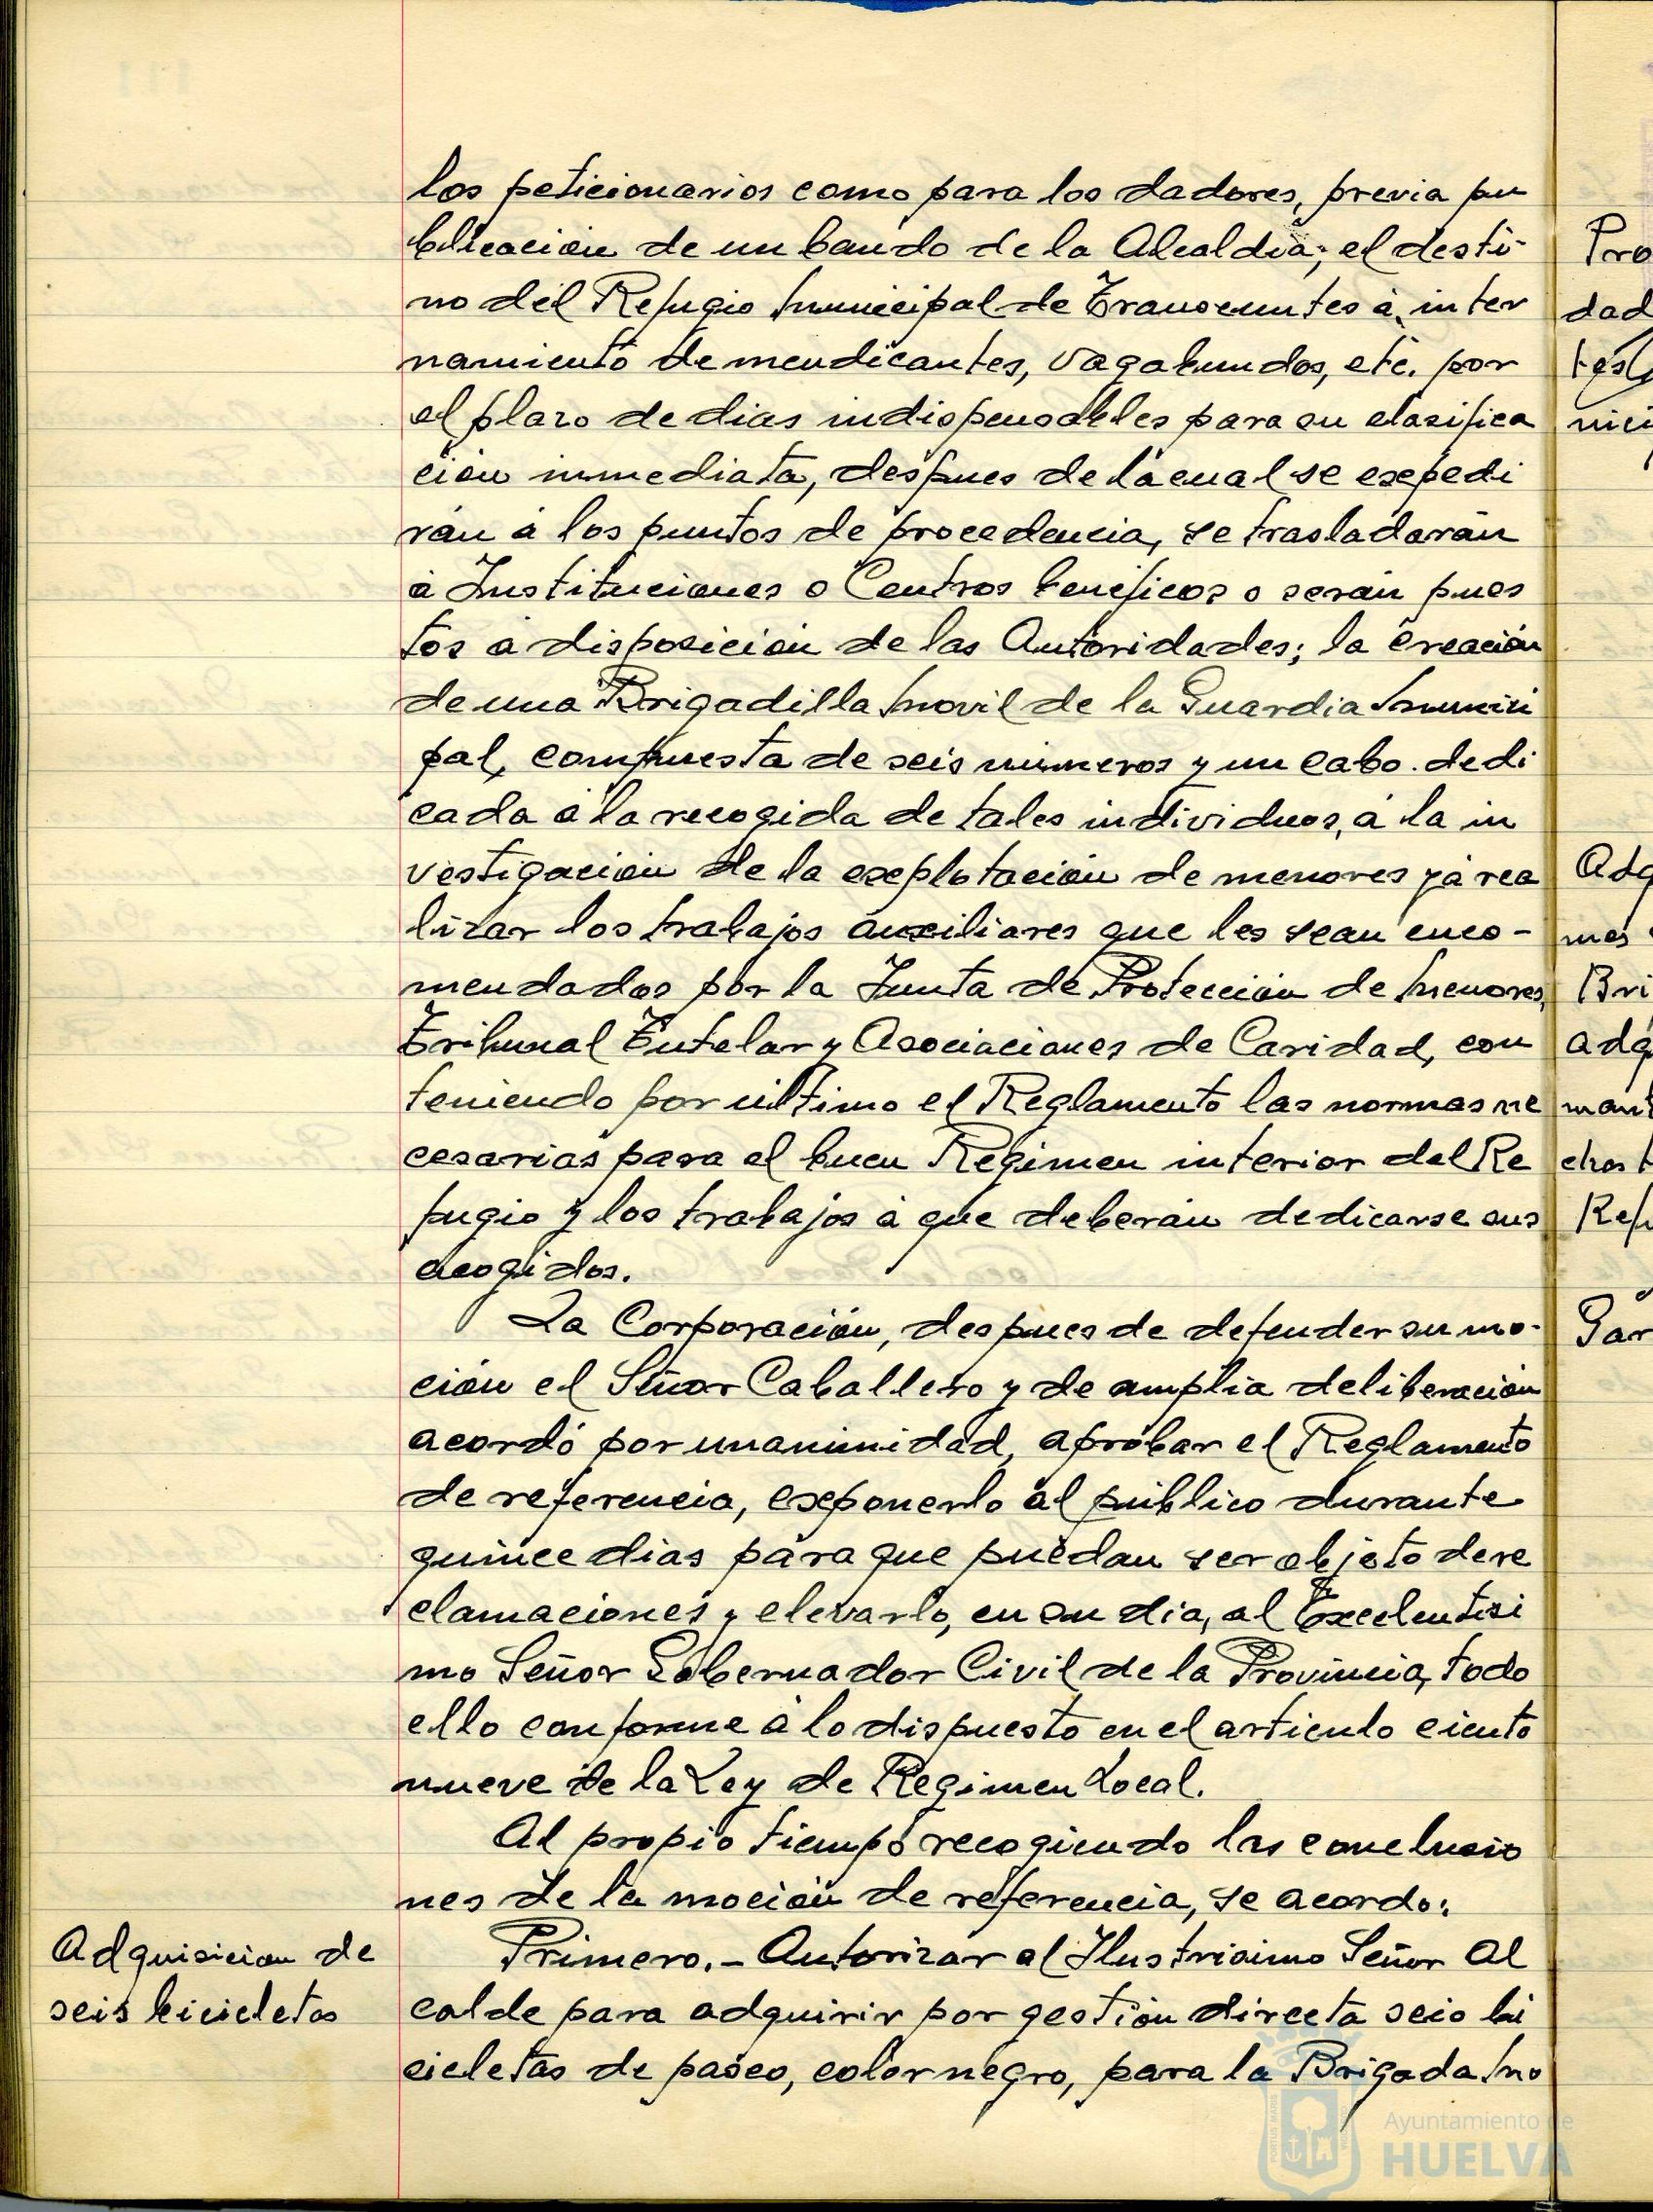 los peticionarios como para los dadores, previa pu
blicación de un bando de la Alcaldía; el desti-
no del Refugio Municipal de Transeuntes á inter
namiento de mendicantes, vagabundos, etc. por
el plazo de dias indispensables para su clasifica
ción inmediata, despues de la cual se expedi
rán á los puntos de procedencia, se trasladarán
á Instituciones o Centros benéficos o serán pues
tos á disposición de las Autoridades; la creación
de una Brigadilla Movil de la Guardia Munici
pal, compuesta de seis números y un Cabo. dedi
cada á la recogida de tales individuos, á la in
vestigación de la explotación de menores y á rea
lizar los trabajos auxiliares que les sean enco-
mendados por la Junta de Protección de Menores,
Tribunal Tutelar y Asociaciones de Caridad, con
teniendo por último el Reglamento las normas ne
cesarias para el buen Regimen interior del Re
fugio y los trabajos á que deberán dedicarse sus
acogidos.
La Corporación, despues de defender su mo-
ción el Señor Caballero y de amplia deliberación
acordó por unanimidad, aprobar el Reglamento
de referencia, exponerlo al público durante
quince dias para que puedan ser objeto de re
clamaciones y elevarlo, en su dia, al Excelentisi
mo Señor Gobernador Civil de la Provincia, todo
ello conforme á lo dispuesto en el articulo ciento
nueve de la Ley de Regimen Local.
Al propio tiempo recogiendo las conclusio
nes de la moción de referencia, se acordo:
Adquisicion de
seis bicicletas
Primero.- Autorizar al Ilustrisimo Señor Al
calde para adquirir por gestión directa seis bi
cicletas de paseo, color negro, para la Brigada Mo
Pro
dad
nici
Adq
mas
Bri
adq
mant
chos
Refu
Gar
Ayuntamiento de
HUELVA